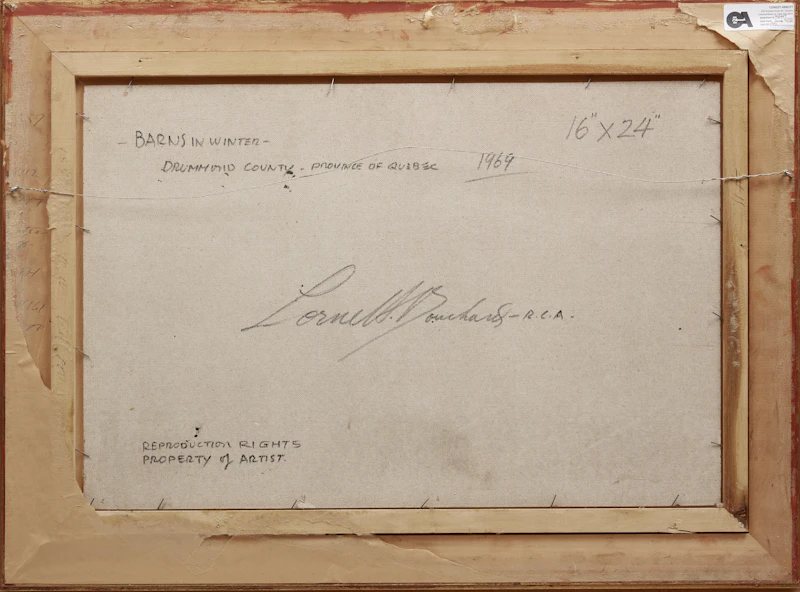 - BARNS IN WINTER -
16" X 24"
DRUMMOND COUNTY - PROVINCE OF QUEBEC 1969
Lorne H. Bouchard - R.C.A.
REPRODUCTION RIGHTS
PROPERTY of ARTIST.